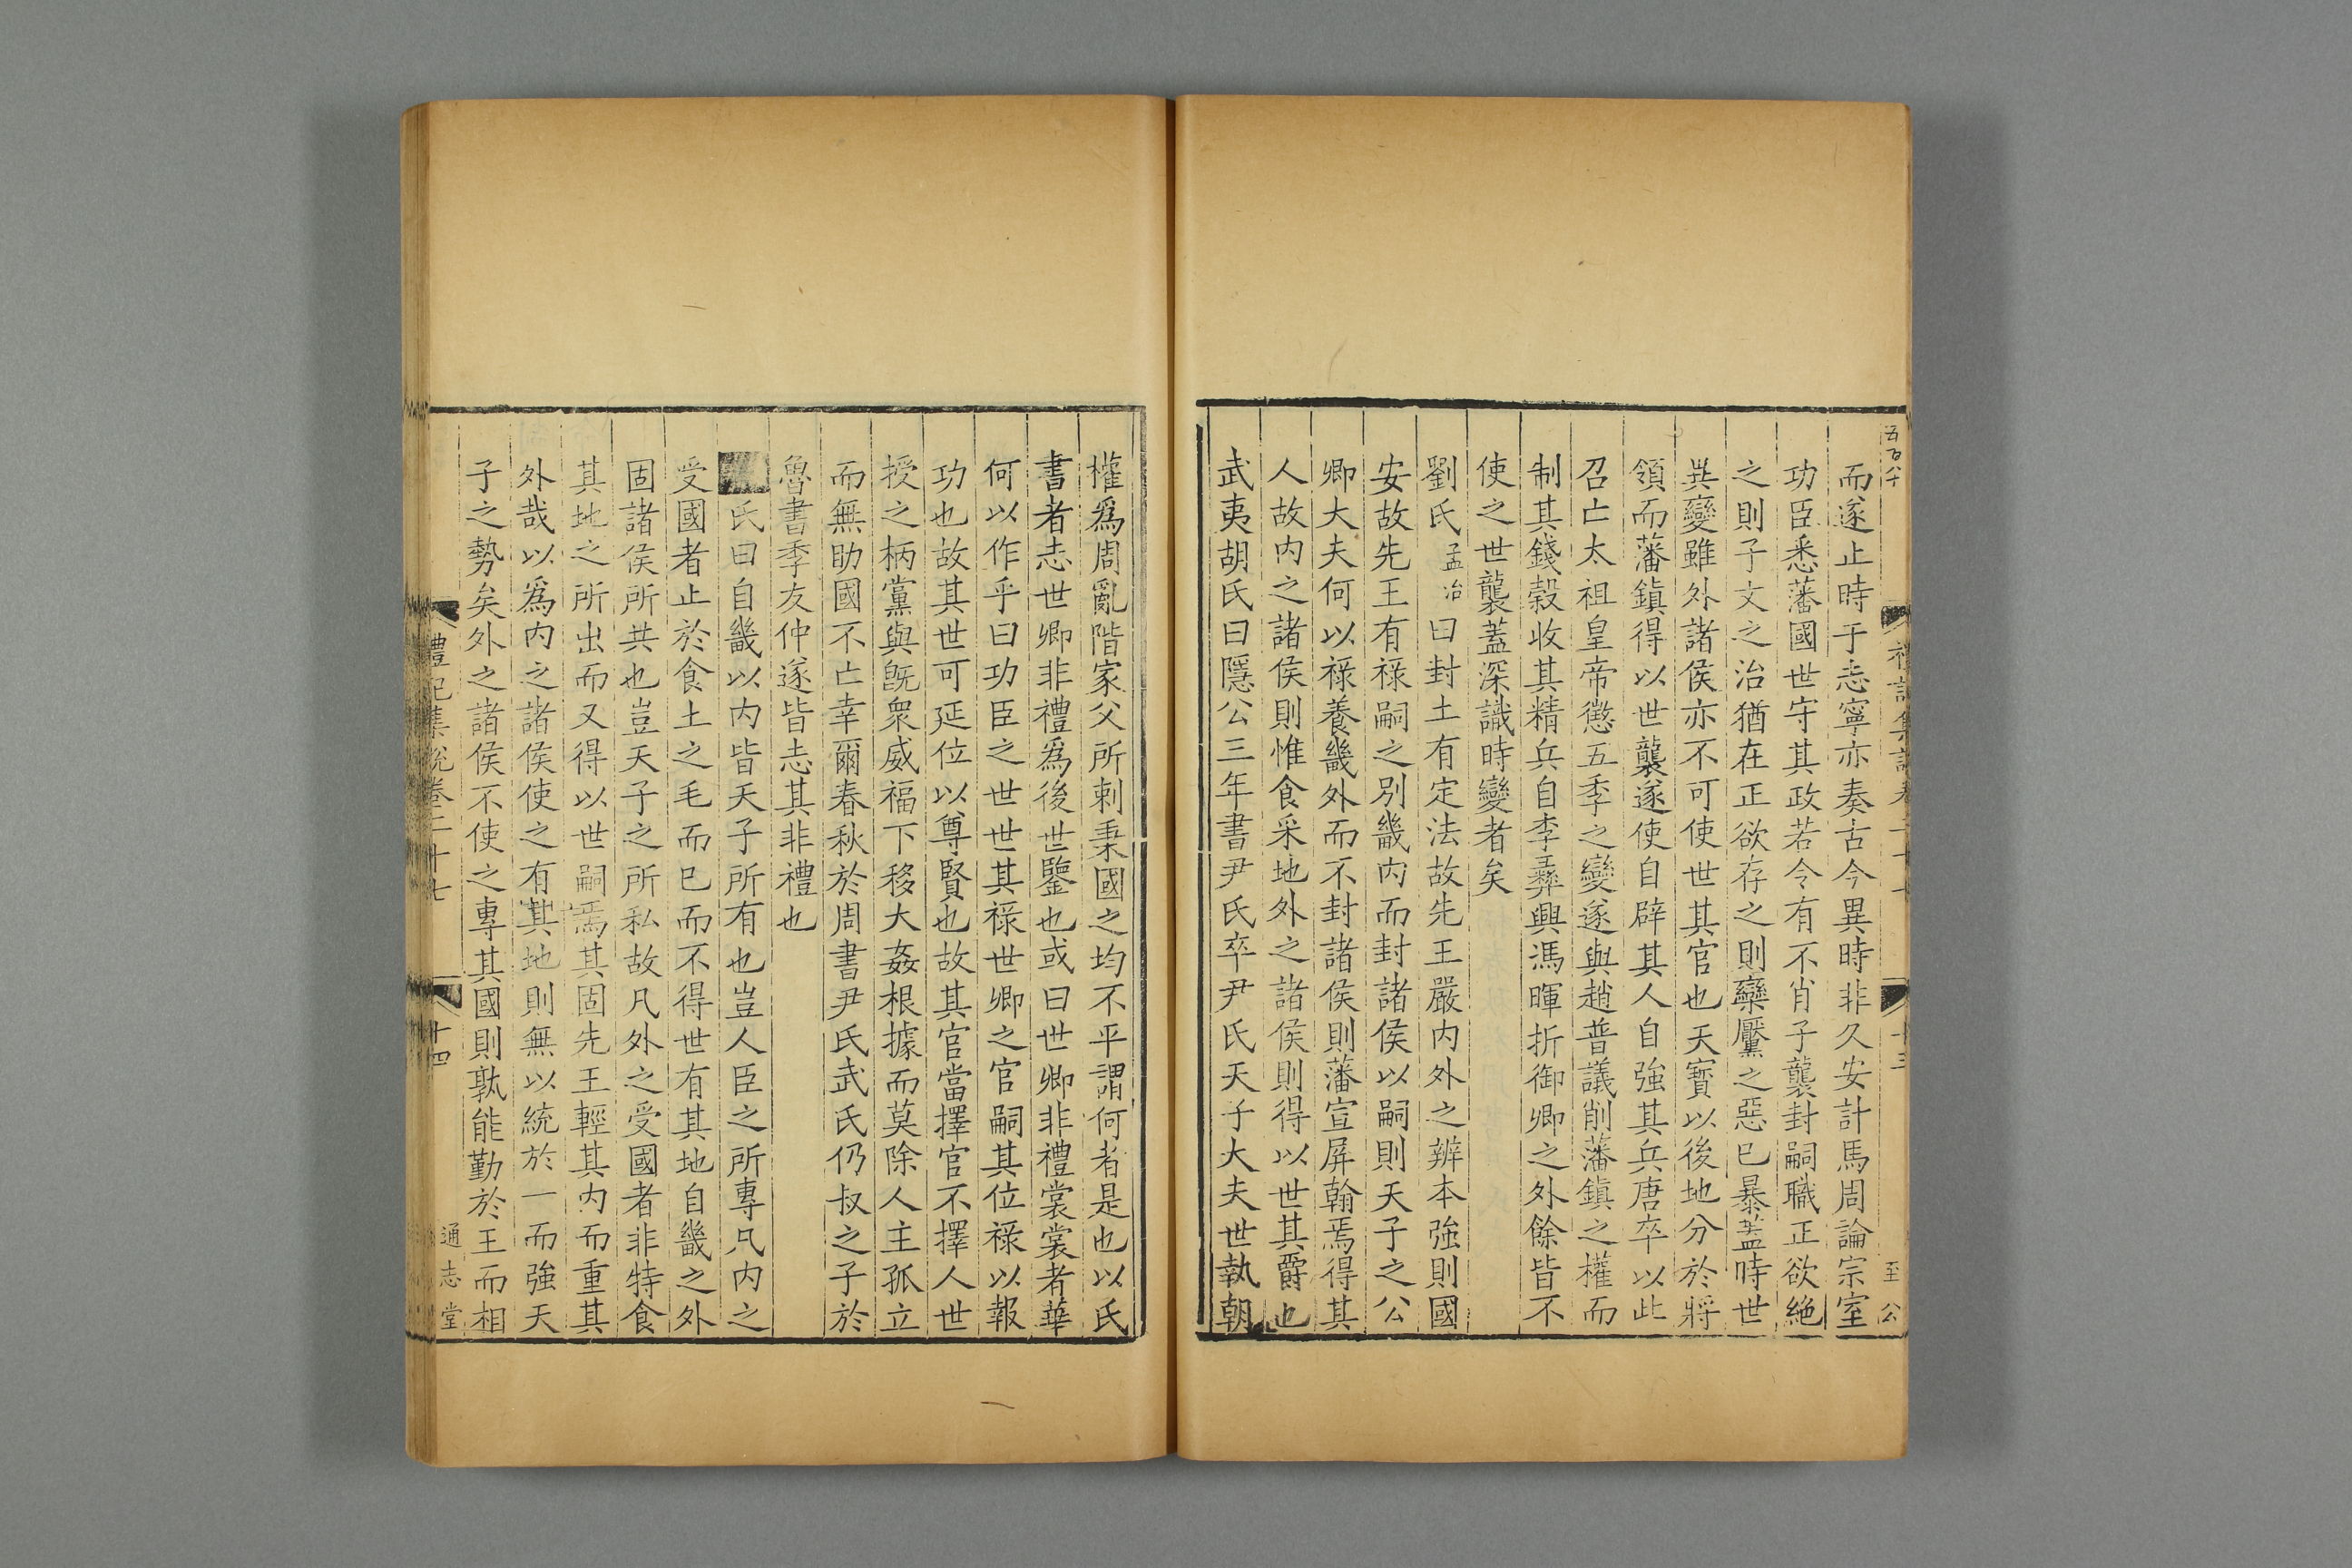 五百八十
禮記集說卷二十七
十三
至公
而遂止時于志寧亦奏古今異時非久安計馬周論宗室
功臣悉藩國世守其政若令有不肖子襲封嗣職正欲絶
之則子文之治猶在正欲存之則欒黶之惡已暴蓋時世
異變雖外諸侯亦不可使世其官也天寳以後地分於將
領而藩鎮得以世襲遂使自辟其人自強其兵唐卒以此
召亡太祖皇帝懲五季之變遂與趙普議削藩鎮之權而
制其錢穀收其精兵自李彝興馮暉折御卿之外餘皆不
使之世襲蓋深識時變者矣
劉氏孟冶曰封土有定法故先王嚴内外之辨本強則國
安故先王有祿嗣之别畿内而封諸侯以嗣則天子之公
卿大夫何以祿養畿外而不封諸侯則藩宣屏翰焉得其
人故内之諸侯則惟食采地外之諸侯則得以世其爵也
武夷胡氏曰隱公三年書尹氏卒尹氏天子大夫世執朝
權爲周亂階家父所刺秉國之均不平謂何者是也以氏
書者志世卿非禮爲後世鑒也或曰世卿非禮裳裳者華
何以作乎曰功臣之世世其祿世卿之官嗣其位祿以報
功也故其世可延位以尊賢也故其官當擇官不擇人世
授之柄黨與既衆威福下移大姦根據而莫除人主孤立
而無助國不亡幸爾春秋於周書尹氏武氏仍叔之子於
魯書季友仲遂皆志其非禮也
氏曰自畿以内皆天子所有也豈人臣之所專凡内之
受國者止於食土之毛而已而不得世有其地自畿之外
固諸侯所共也豈天子之所私故凡外之受國者非特食
其地之所出而又得以世嗣焉其固先王輕其内而重其
外哉以爲内之諸侯使之有其地則無以統於一而強天
子之勢矣外之諸侯不使之專其國則孰能勤於王而相
禮記集說卷二十七
十四
通志堂